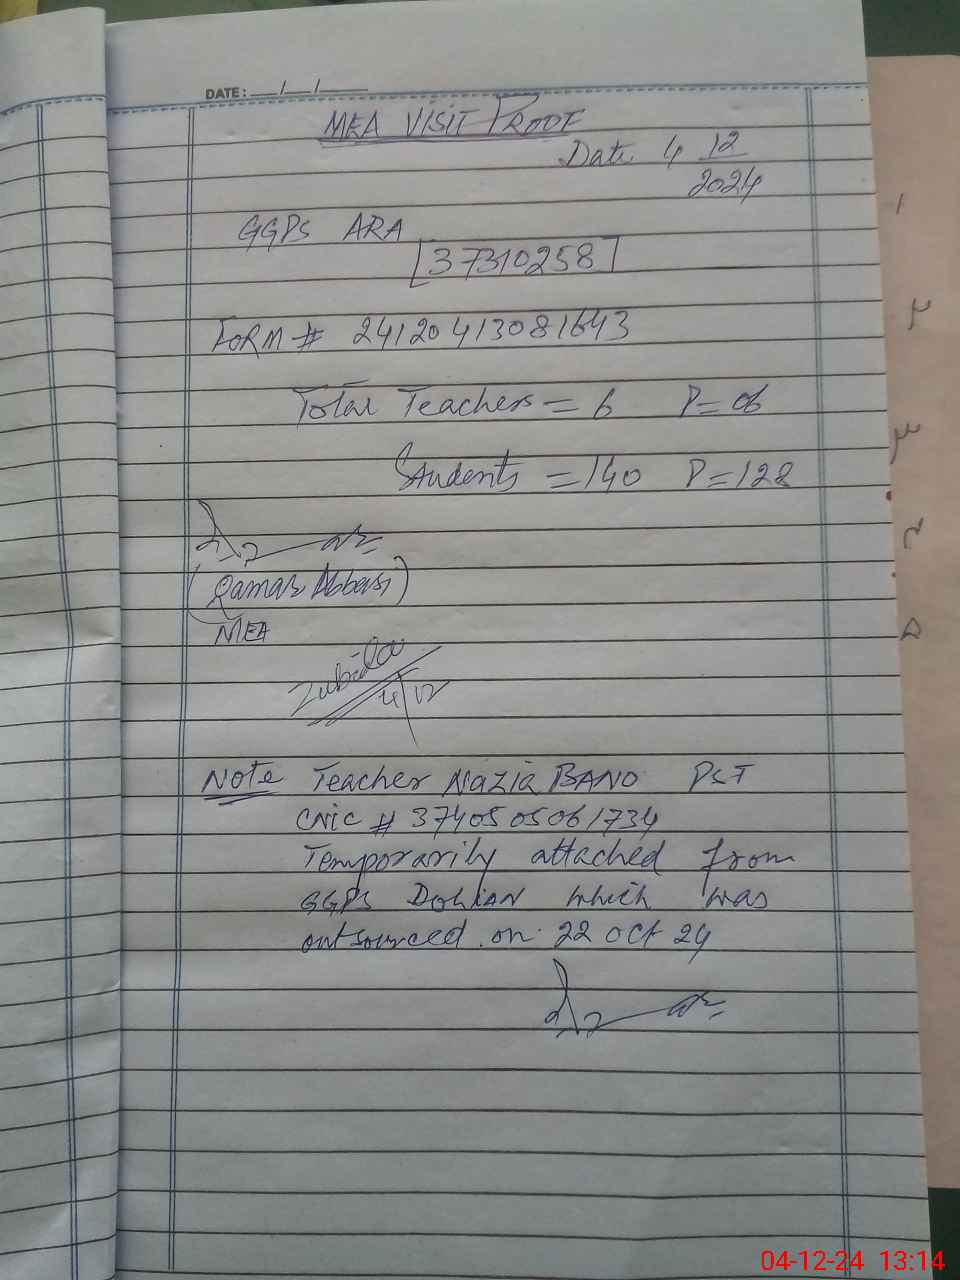 DATE: __/__/____
MEA VISIT PROOF
Date. 4 12/2024
GGPS ARA
37310258
FORM # 24120413081643
Total Teachers = 6 P = 06
Students = 140 P = 128
(Qamar Abbasi)
MEA
Zubida
4/12
Note Teacher Nazia BANO PST
CNIC # 3740505061734
Temporarily attached from
GGPS DOHIAN which was
outsourced on 22 oct 24
04-12-24 13:14